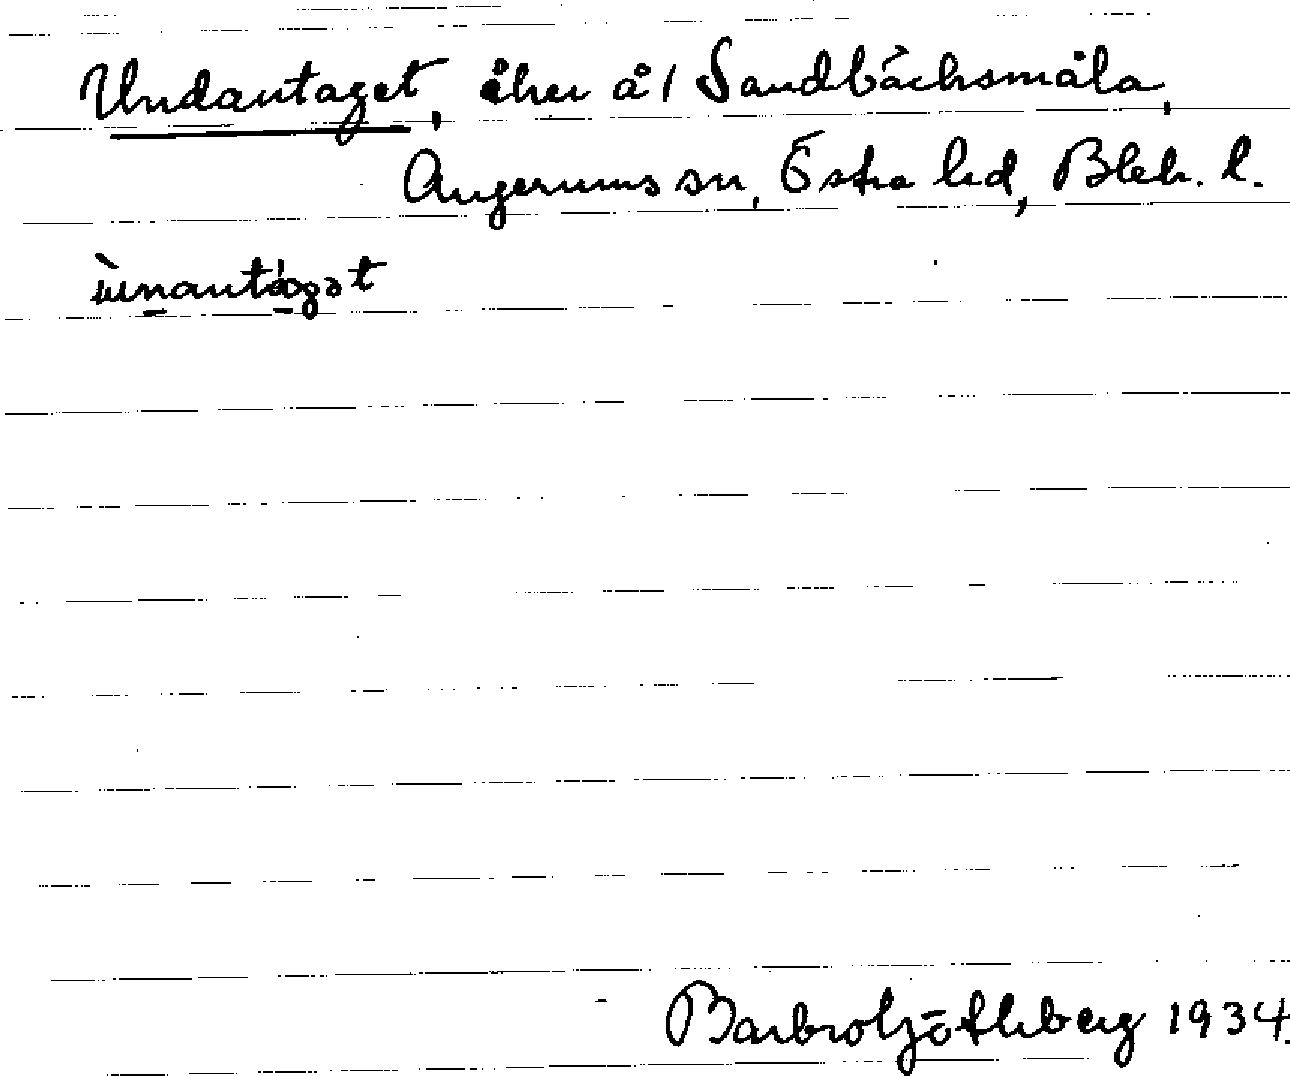 Undantaget, åker å 1 Sandbäcksmåla,
Augerums sn, Östra hd, Blek. l.
Barbro Götlberg 1934.